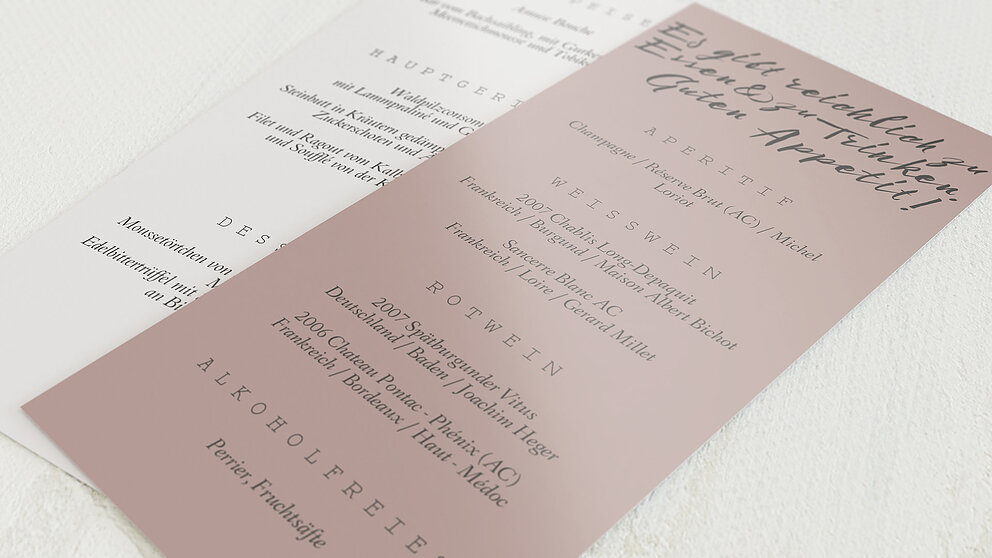 Es gibt reichlich zu
Essen & zu Trinken.
Guten Appetit!
APERITIF
Champagne / Réserve Brut (AC) / Michel
Loriot
WEISSWEIN
2007 Chablis Long-Depaquit
Frankreich / Burgund / Maison Albert Bichot
Sancerre Blanc AC
Frankreich / Loire / Gerard Millet
ROTWEIN
2007 Spälburgunder Vitus
Deutschland / Baden / Joachim Heger
2006 Chateau Pontac - Phénix (AC)
Frankreich / Bordeaux / Haut - Médoc
ALKOHOLFREIES
Perrier, Fruchtsäfte
Amuse Bouche
vom Bachsaibling, mit Gurke
Meeresschmousse und Tobik
HAUPTGERI
Waldpilzconsom
mit Lammpraliné und G
Steinbutt in Kräutern gedämp
Zuckerschoten und
Filet und Ragout vom Kalb
und Soufflé von der K
DESS
Moussetörtchen von
Edelbittertrüffel mit
an Bi